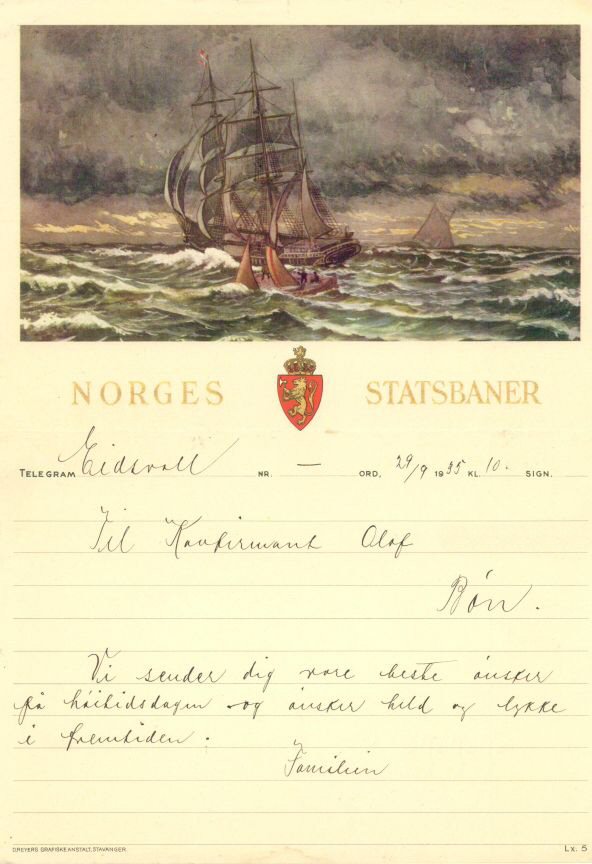 NORGES STATSBANER
TELEGRAM Eidsvoll NR. — ORD, 29/9 1935 KL. 10. SIGN.
Til Konfirmant Olaf
Bøn.
Vi sender dig vore beste ønsker
på høitidsdagen og ønsker held og lykke
i fremtiden.
Familien
DREYERS GRAFISKE ANSTALT, STAVANGER.
Lx. 5